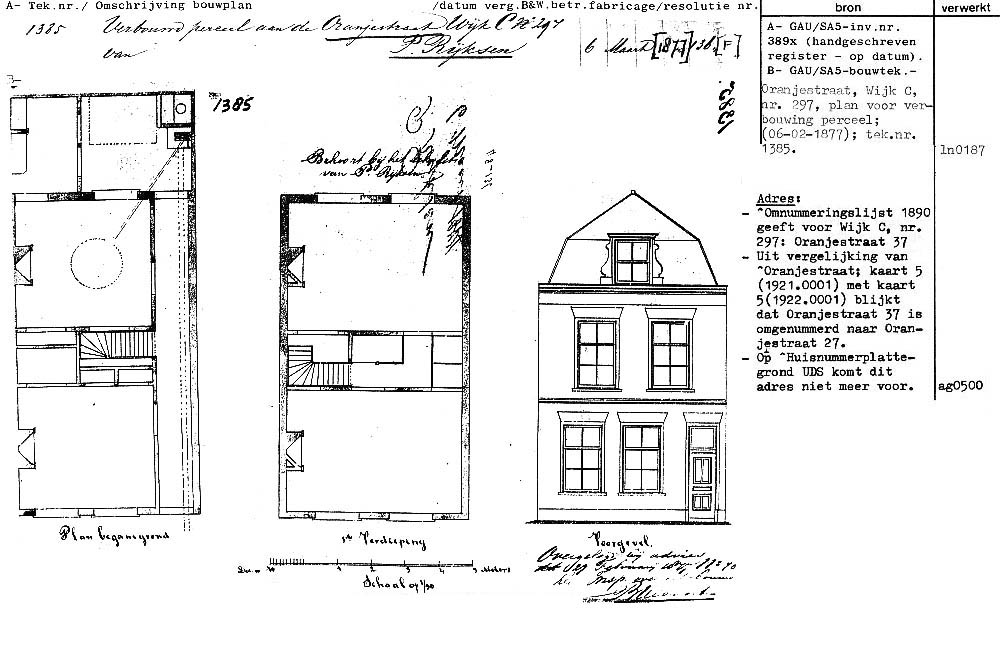 A- Tek.nr./ Omschrijving bouwplan /datum verg.B&W.betr.fabricage/resolutie nr.
bron
verwerkt
1385 Verbouwd perceel aan de Oranjestraat Wijk C No 297
van P. Rijksen
6 Maart [1877] 138 [F]
A- GAU/SA5-inv.nr.
389x (handgeschreven
register - op datum).
B- GAU/SA5-bouwtek.-
Oranjestraat, Wijk C,
nr. 297, plan voor ver-
bouwing perceel;
(06-02-1877); tek.nr.
1385.
ln0187
Adres:
- ^Omnummeringslijst 1890
geeft voor Wijk C, nr.
297: Oranjestraat 37
- Uit vergelijking van
^Oranjestraat; kaart 5
(1921.0001) met kaart
5(1922.0001) blijkt
dat Oranjestraat 37 is
omgenummerd naar Oran-
jestraat 27.
- Op ^Huisnummerplatte-
grond UDS komt dit
adres niet meer voor.
ag0500
1385
1385
Behoort bij het
van P. Rijksen
Plan beganegrond
1ste Verdieping
Voorgevel.
1 2 3 4 5 Meters
Schaal op
Overgelegd bij advies
Februarij